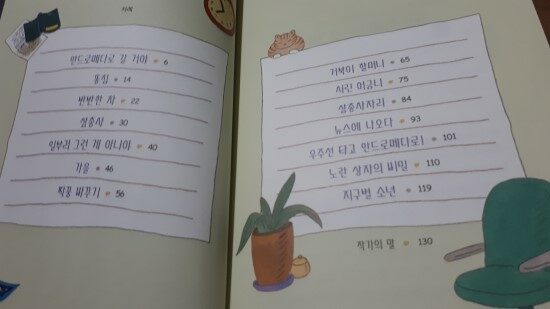 차례
안드로메다로 갈 거야 6
뚱심 14
반반한 자 22
삼총사 30
일부러 그런 게 아니야 40
가을 46
짝꿍 바꾸기 56
거북이 할머니 65
시린 어금니 75
삼총사자리 84
뉴스에 나오다 93
우주선 타고 안드로메다로! 101
노란 상자의 비밀 110
지구별 소년 119
작가의 말 130